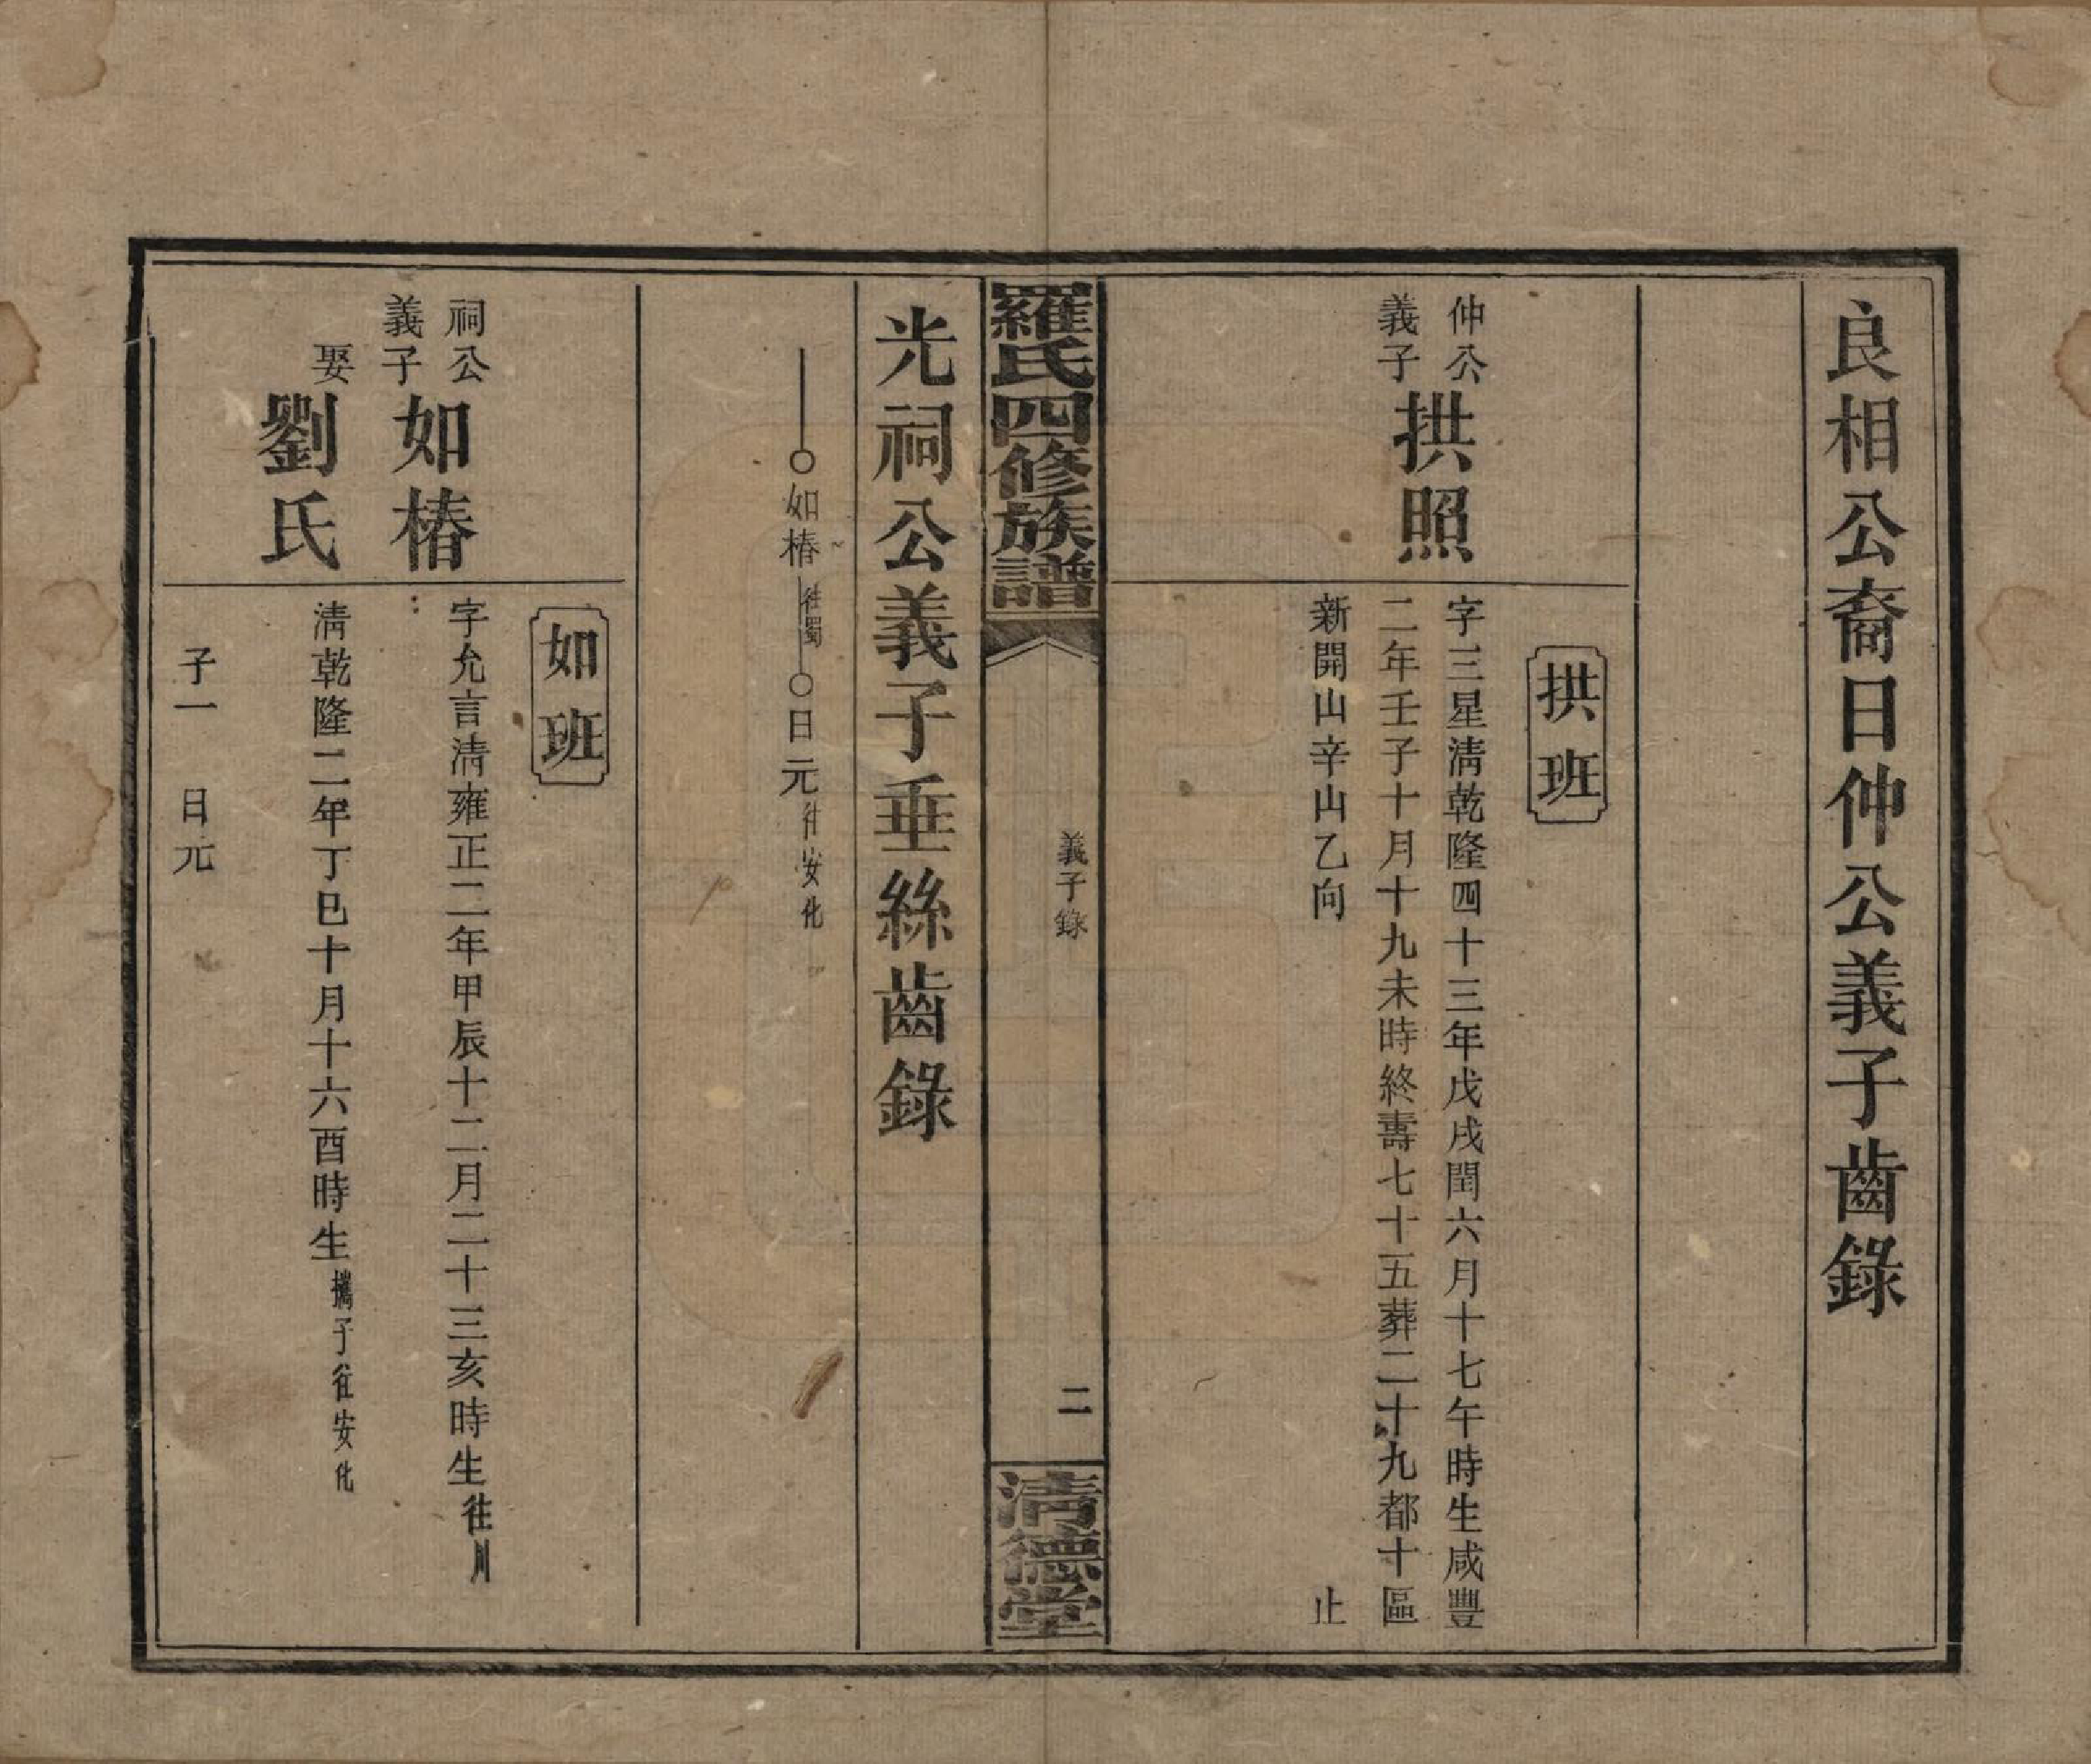 良相公裔日仲公義子齒錄
拱班
仲公
義子
拱照
字三星清乾隆四十三年戊戌閏六月十七午時生咸豐
二年壬子十月十九未時終壽七十五葬二十九都十區
新開山辛山乙向
止
羅氏四修族譜
義子錄
二
清德堂
光祠公義子垂絲齒錄
如椿 往蜀 日元 往安化
如班
祠公
義子
如椿
字允言清雍正二年甲辰十二月二十三亥時生往川
娶
劉氏
清乾隆二年丁巳十月十六酉時生攜子往安化
子一 日元